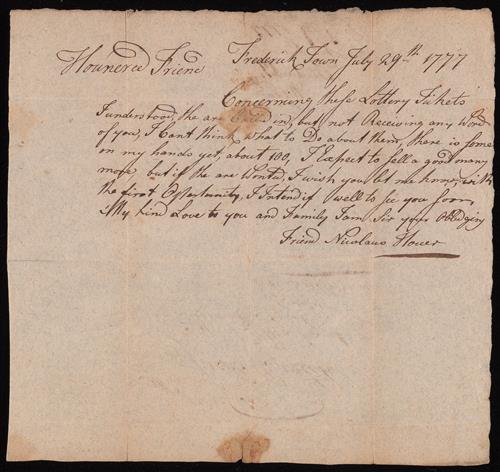 Hounered Friend Frederick Town July 29th 1777
Concerning these Lottery Tickets
I understood, the are Calld in, but not Receiving any Word
of you, I Cant think what to Do about them, there is some
on my hands yet, about 100, I Expect to sell a good many
more, but if the are Wonted, I wish you let me know, with
the first Opportunity, I Intend if well to see you soon
My kind Love to you and Family I am Sir your Obliging
Friend Nicolaus Hower